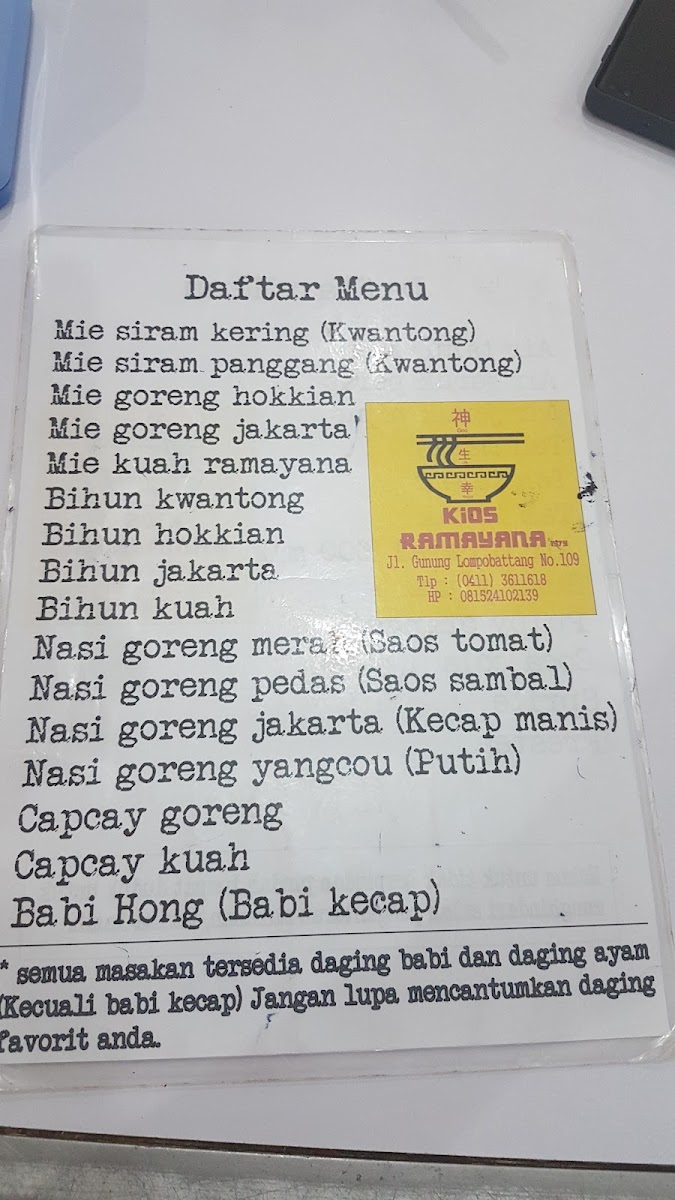 Daftar Menu
Mie siram kering (Kwantong)
Mie siram panggang (Kwantong)
Mie goreng hokkian
Mie goreng jakarta
Mie kuah ramayana
Bihun kwantong
Bihun hokkian
Bihun jakarta
Bihun kuah
神
生
幸
KiOS
RAMAYANA
Jl. Gunung Lompobattang No.109
Tlp : (0411) 3611618
HP : 081524102139
Nasi goreng merah (Saos tomat)
Nasi goreng pedas (Saos sambal)
Nasi goreng jakarta (Kecap manis)
Nasi goreng yangcou (Putih)
Capcay goreng
Capcay kuah
Babi Hong (Babi kecap)
* semua masakan tersedia daging babi dan daging ayam
(Kecuali babi kecap) Jangan lupa mencantumkan daging
favorit anda.